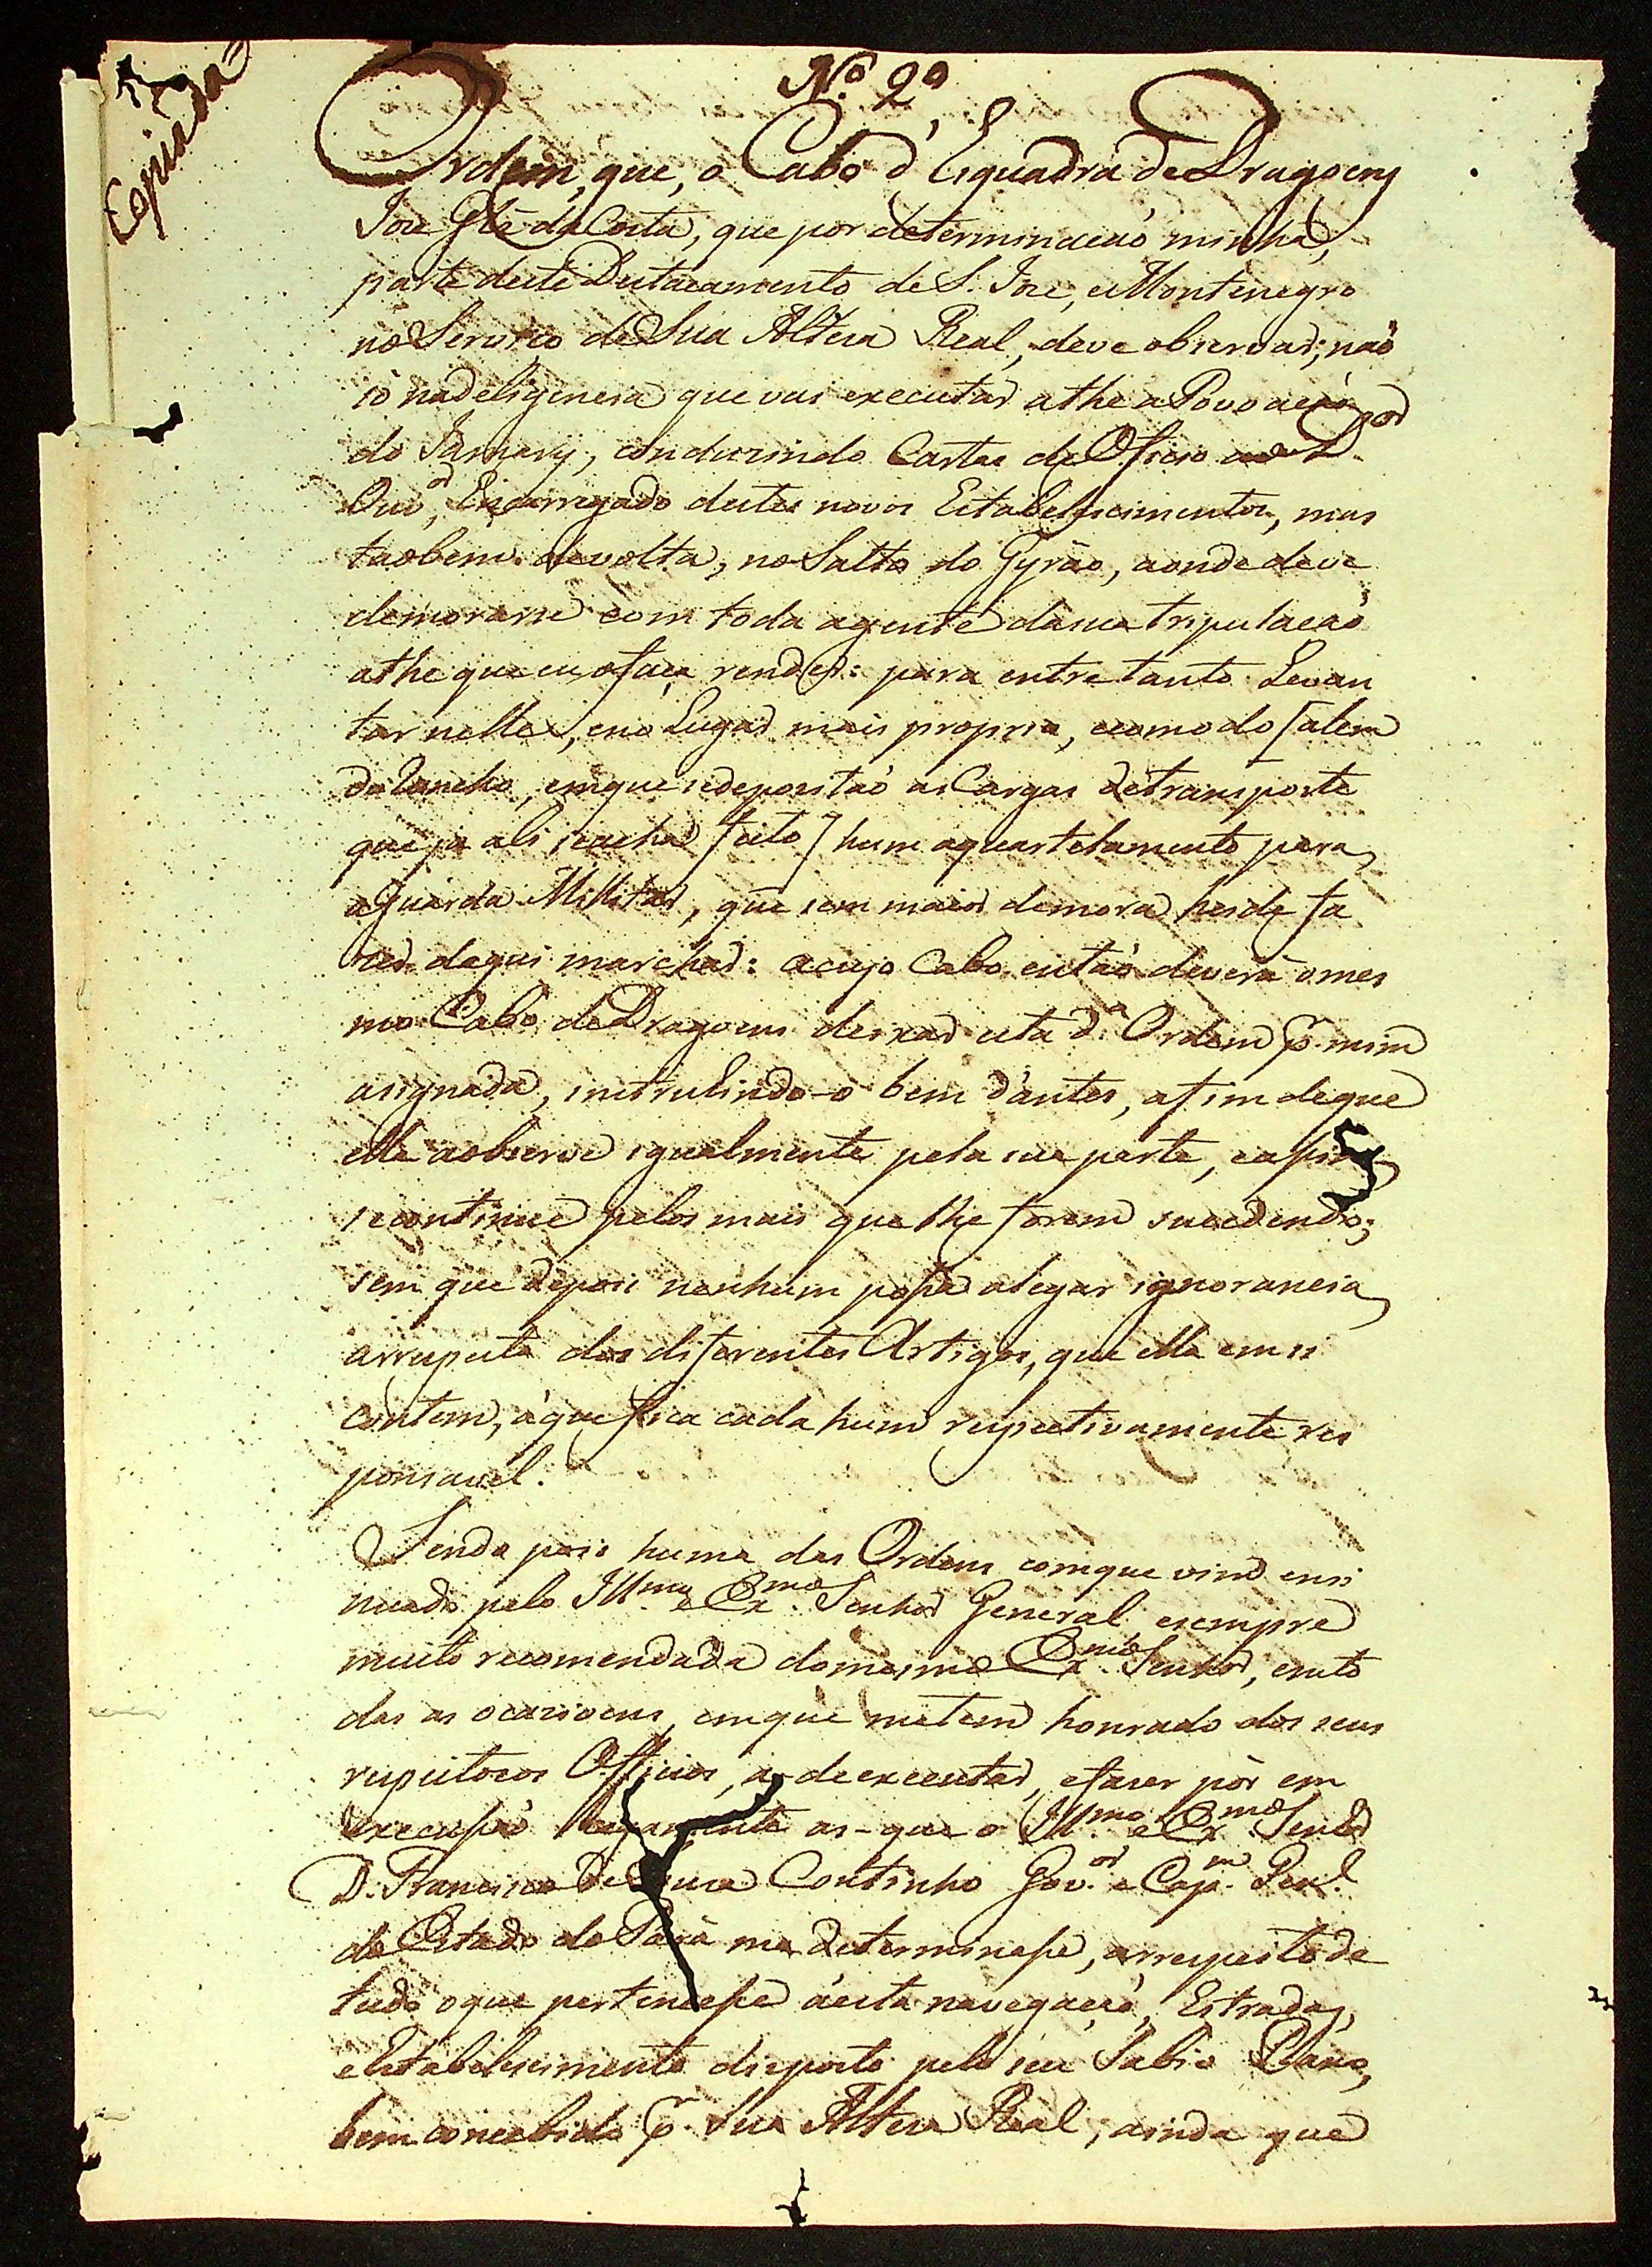 Espinda
N.º 2º
Ordem, que, o Cabo d' Esquadra de Dragoens
Joze Glz da Costa, que por determinacaó minha,
parte deste Destacamento de S. Joze, e Montenegro
no Serviço de Sua Alteza Real, deve observar; naõ
só na deligencia que vai executar athe a Povoacaó
do Jamary, conduzindo Cartas de Oficio ao D.or
Ouv.or, Encarregado destes novos Estabelescimentos, mas
taobem de volta, no Salto do Gyráo, aonde deve
demorarse com toda a gente da sua tripulacaó
athe que eu o faça render: para entre tanto Levan
tar nelle, e no Lugar mais proprio, e comodo [alem
do Rancho, em que se depozitaó as Cargas de transporte
que ja ali se acha feito] hum aquartelamento para
a Guarda Millitar, que sem maior demora hei de fa
zer daqui marchar: a cujo Cabo entaó deverá o mes
mo Cabo de Dragoens deixar esta d.ª Ordem p.r mim
asignada, instrulindo-o bem d'antes, afim de que
elle a observe igualmente pela sua parte, e assim
se continue pelos mais que lhe forem sucedendo;
sem que depois nenhum possa alegar ignorancia
arrespeito dos diferentes Artigos, que ella em si
contem, á que fica cada hum respectivamente res
ponsavel.
Sendo pois huma das Ordens com que vim ensi
nuado pelo Ill.mo e Ex.mo Senhor General, e sempre
muito recomendada do mesmo Ex.mo Senhor, em to
das as ocazioens, em que me tem honrado dos seus
respeitozos Officios, a de executar, e fazer pôr em
execussaó as que o Ill.mo e Ex.mo Senhor
D. Francisco De Souza Coutinho Gov.or e Cap.m Gen.l
do Estado do Pará me determinasse, arrespeito de
tudo o que pertencesse á esta navegaçaó, Estradas,
e Estabelescimento disposto pelo seu Sabio Plano,
bem concebido p.r Sua Alteza Real; ainda que